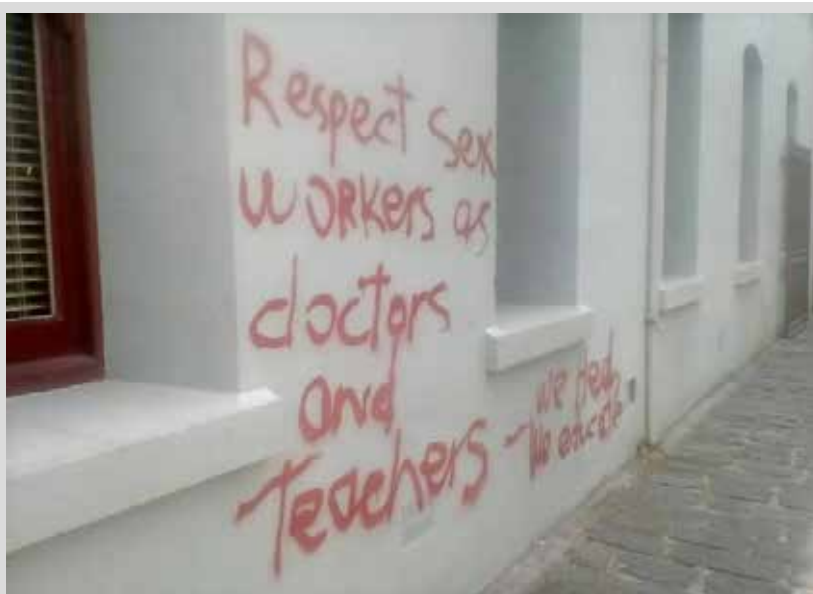 Respect Sex
WORKers as
doctors
and
Teachers - we heal
We educate